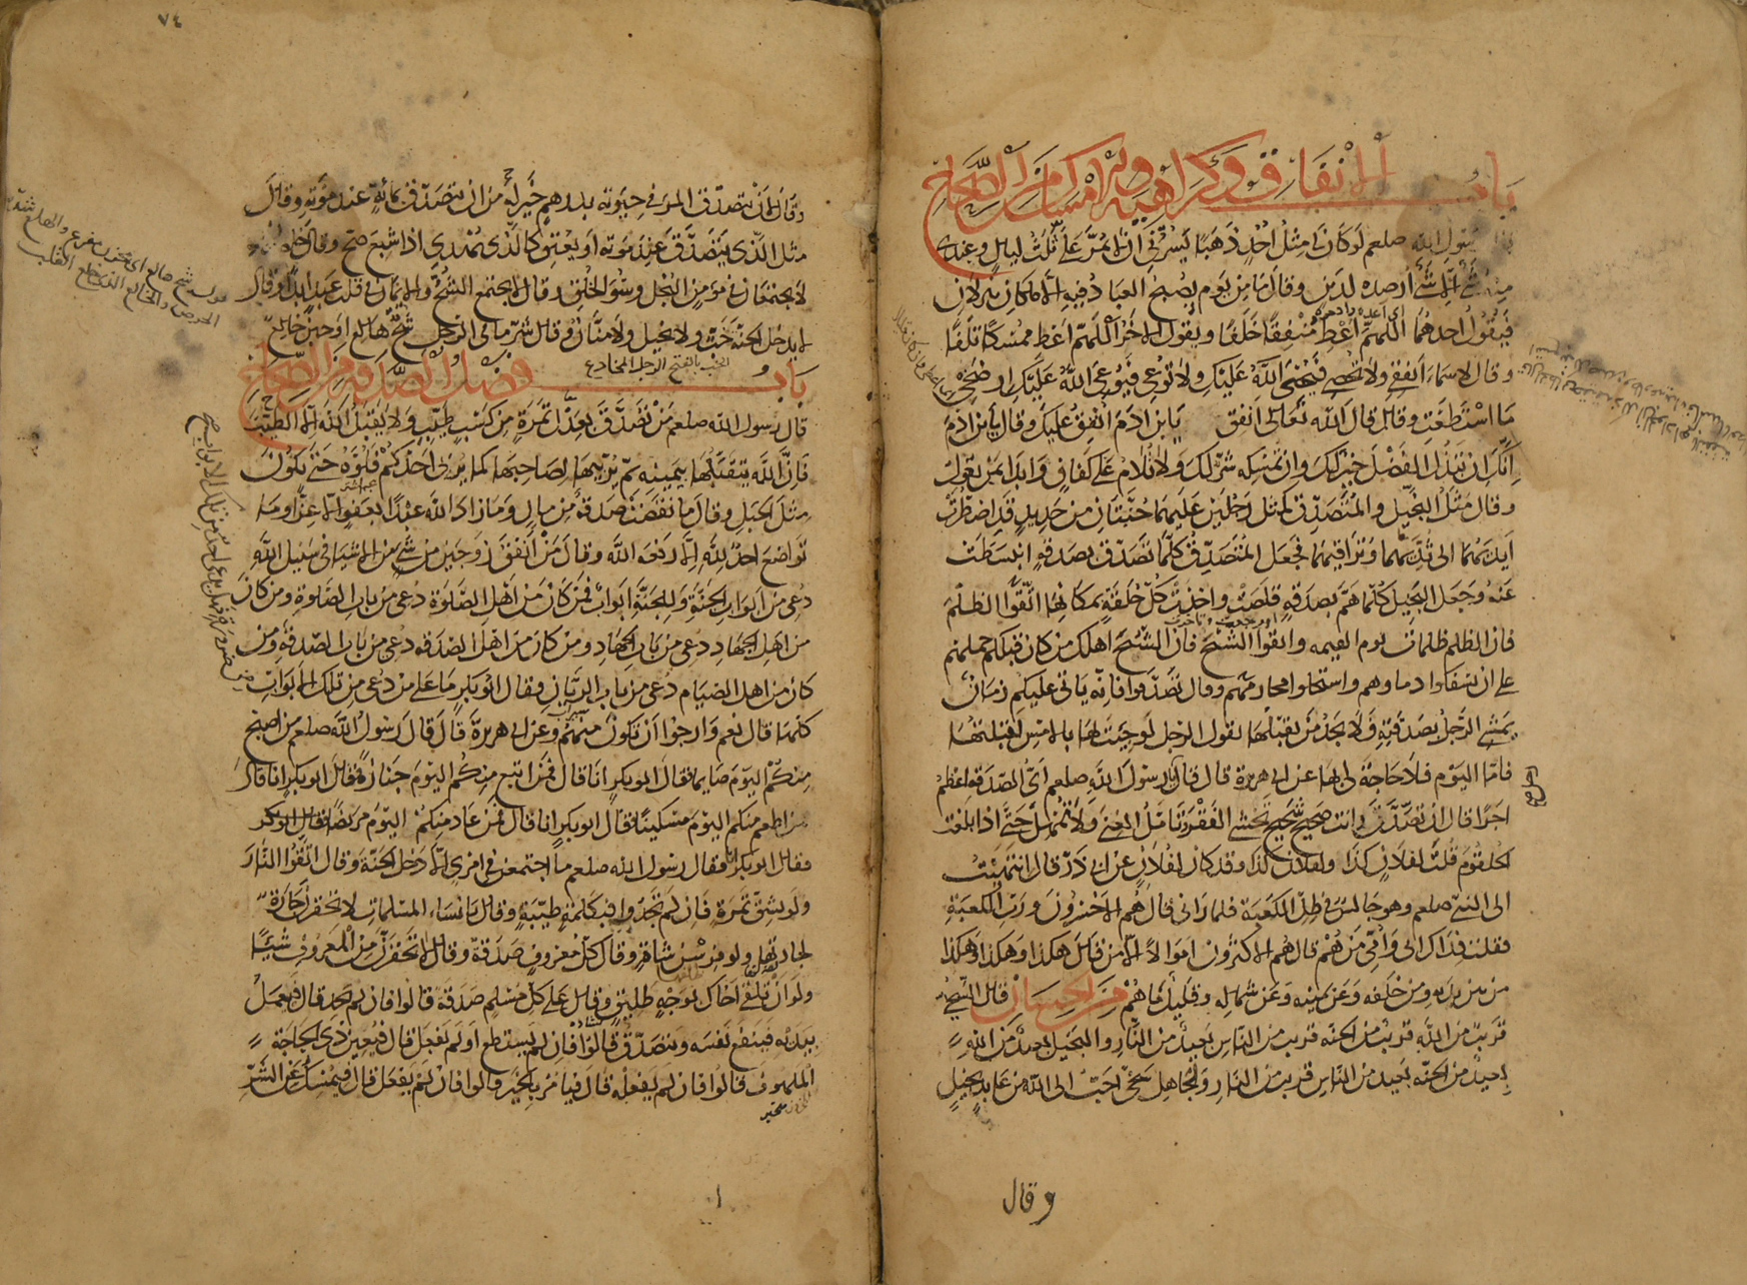 باب الانفاق وكراهية الامساك من الصحاح
رسول الله صلعم لو كان لي مثل احد ذهبا يسرني ان لا يمر علي ثلث ليال وعندي
منه شئ الا شئ ارصده لدين وقال ما من يوم يصبح العباد فيه الا ملكان ينزلان
فيقول احدهما اللهم اعط منفقا خلفا ويقول الاخر اللهم اعط ممسكا تلفا
وقال لاسماء انفقي ولا تحصي فيحصي الله عليك ولا توعي فيوعي الله عليك ارضخي
ما استطعت وقال قال الله تعالى انفق يا بن ادم انفق عليك وقال يا بن ادم
انك ان تبذل الفضل خير لك وان تمسكه شر لك ولا تلام على كفاف وابدا بمن تعول
وقال مثل البخيل والمتصدق كمثل رجلين عليهما جنتان من حديد قد اضطرت
ايديهما الى ثديهما وتراقيهما فجعل المتصدق كلما تصدق بصدقة انبسطت
عنه وجعل البخيل كلما هم بصدقة قلصت واخذت كل حلقة بمكانها اتقوا الظلم
فان الظلم ظلمات يوم القيمه واتقوا الشح فان الشح اهلك من كان قبلكم حملهم
على ان سفكوا دماءهم واستحلوا محارمهم وقال تصدقوا فانه ياتي عليكم زمان
يمشي الرجل بصدقته فلا يجد من يقبلها يقول الرجل لو جيت بها بالامس لقبلتها
فاما اليوم فلا حاجة لي بها عن ابي هريرة قال قال يا رسول الله صلعم اي الصدقة اعظم
اجرا قال ان تصدق وانت صحيح شحيح تخشى الفقر وتامل الغنى ولا تمهل حتى اذا بلغت
الحلقوم قلت لفلان كذا ولفلان كذا وقد كان لفلان عن ابي ذر قال انتهيت
الى النبي صلعم وهو جالس في ظل الكعبة فلما راني قال هم الاخسرون ورب الكعبة
فقلت فداك ابي وامي من هم قال هم الاكثرون اموالا الا من قال هكذا وهكذا وهكذا
من بين يديه ومن خلفه وعن يمينه وعن شماله وقليل ما هم من الحسان قال السخي
قريب من الله قريب من الجنة قريب من الناس بعيد من النار والبخيل بعيد من الله
بعيد من الجنة بعيد من الناس قريب من النار ولجاهل سخي احب الى الله من عابد بخيل
وقال
٧٤
وقال لان يتصدق المرء في حيوته بدرهم خير له من ان يتصدق بمائة عند موته وقال
مثل الذي يتصدق عند موته او يعتق كالذي يهدي اذا شبع صح وقال خصلتان
لا يجتمعان في مؤمن البخل وسوء الخلق وقال لا يجتمع الشح والايمان في قلب عبد ابدا وقال
لا يدخل الجنة خب ولا بخيل ولا منان وقال شر ما في الرجل شح هالع او جبن خالع
الخب بالفتح الرجل الخادع
باب فضل الصدقة من الصحاح
قال رسول الله صلعم من تصدق بعدل تمرة من كسب طيب ولا يقبل الله الا الطيب
فان الله يتقبلها بيمينه ثم يربيها لصاحبها كما يربى احدكم فلوه حتى يكون
مثل الجبل وقال ما نقصت صدقة من مال وما زاد الله عبدا بعفو الا عزا وما
تواضع احد لله الا رفعه الله وقال من انفق زوجين من شئ من الاشياء في سبيل الله
دعي من ابواب الجنة وللجنة ابواب فمن كان من اهل الصلوة دعي من باب الصلوة ومن كان
من اهل الجهاد دعي من باب الجهاد ومن كان من اهل الصدقه دعي من باب الصدقة ومن
كان من اهل الصيام دعي من باب الريان فقال ابو بكر ما على من دعي من تلك الابواب
كلها قال نعم وارجوا ان تكون منهم وعن ابي هريرة قال قال رسول الله صلعم من اصبح
منكم اليوم صايما قال ابو بكر انا قال فمن اتبع منكم اليوم جنازة قال ابو بكر انا قال
من اطعم منكم اليوم مسكينا قال ابو بكر انا قال فمن عاد منكم اليوم مريضا قال ابو بكر
فقال ابو بكر انا فقال رسول الله صلعم ما اجتمعن في امرئ الا دخل الجنة وقال اتقوا النار
ولو بشق تمرة فان لم تجدوا فبكلمة طيبة وقال يا نساء المسلمات لا تحقرن جارة
لجارتها ولو فرسن شاة وقال كل معروف صدقة وقال لا تحقرن من المعروف شيئا
ولو ان تلقى اخاك بوجه طليق وقال على كل مسلم صدقة قالوا فان لم يجد قال فيعمل
بيديه فينفع نفسه ويتصدق قالوا فان لم يستطع او لم يفعل قال فيعين ذي الحاجة
الملهوف قالوا فان لم يفعله قال فيامر بالخير قالوا فان لم يفعل قال فيمسك عن الشر